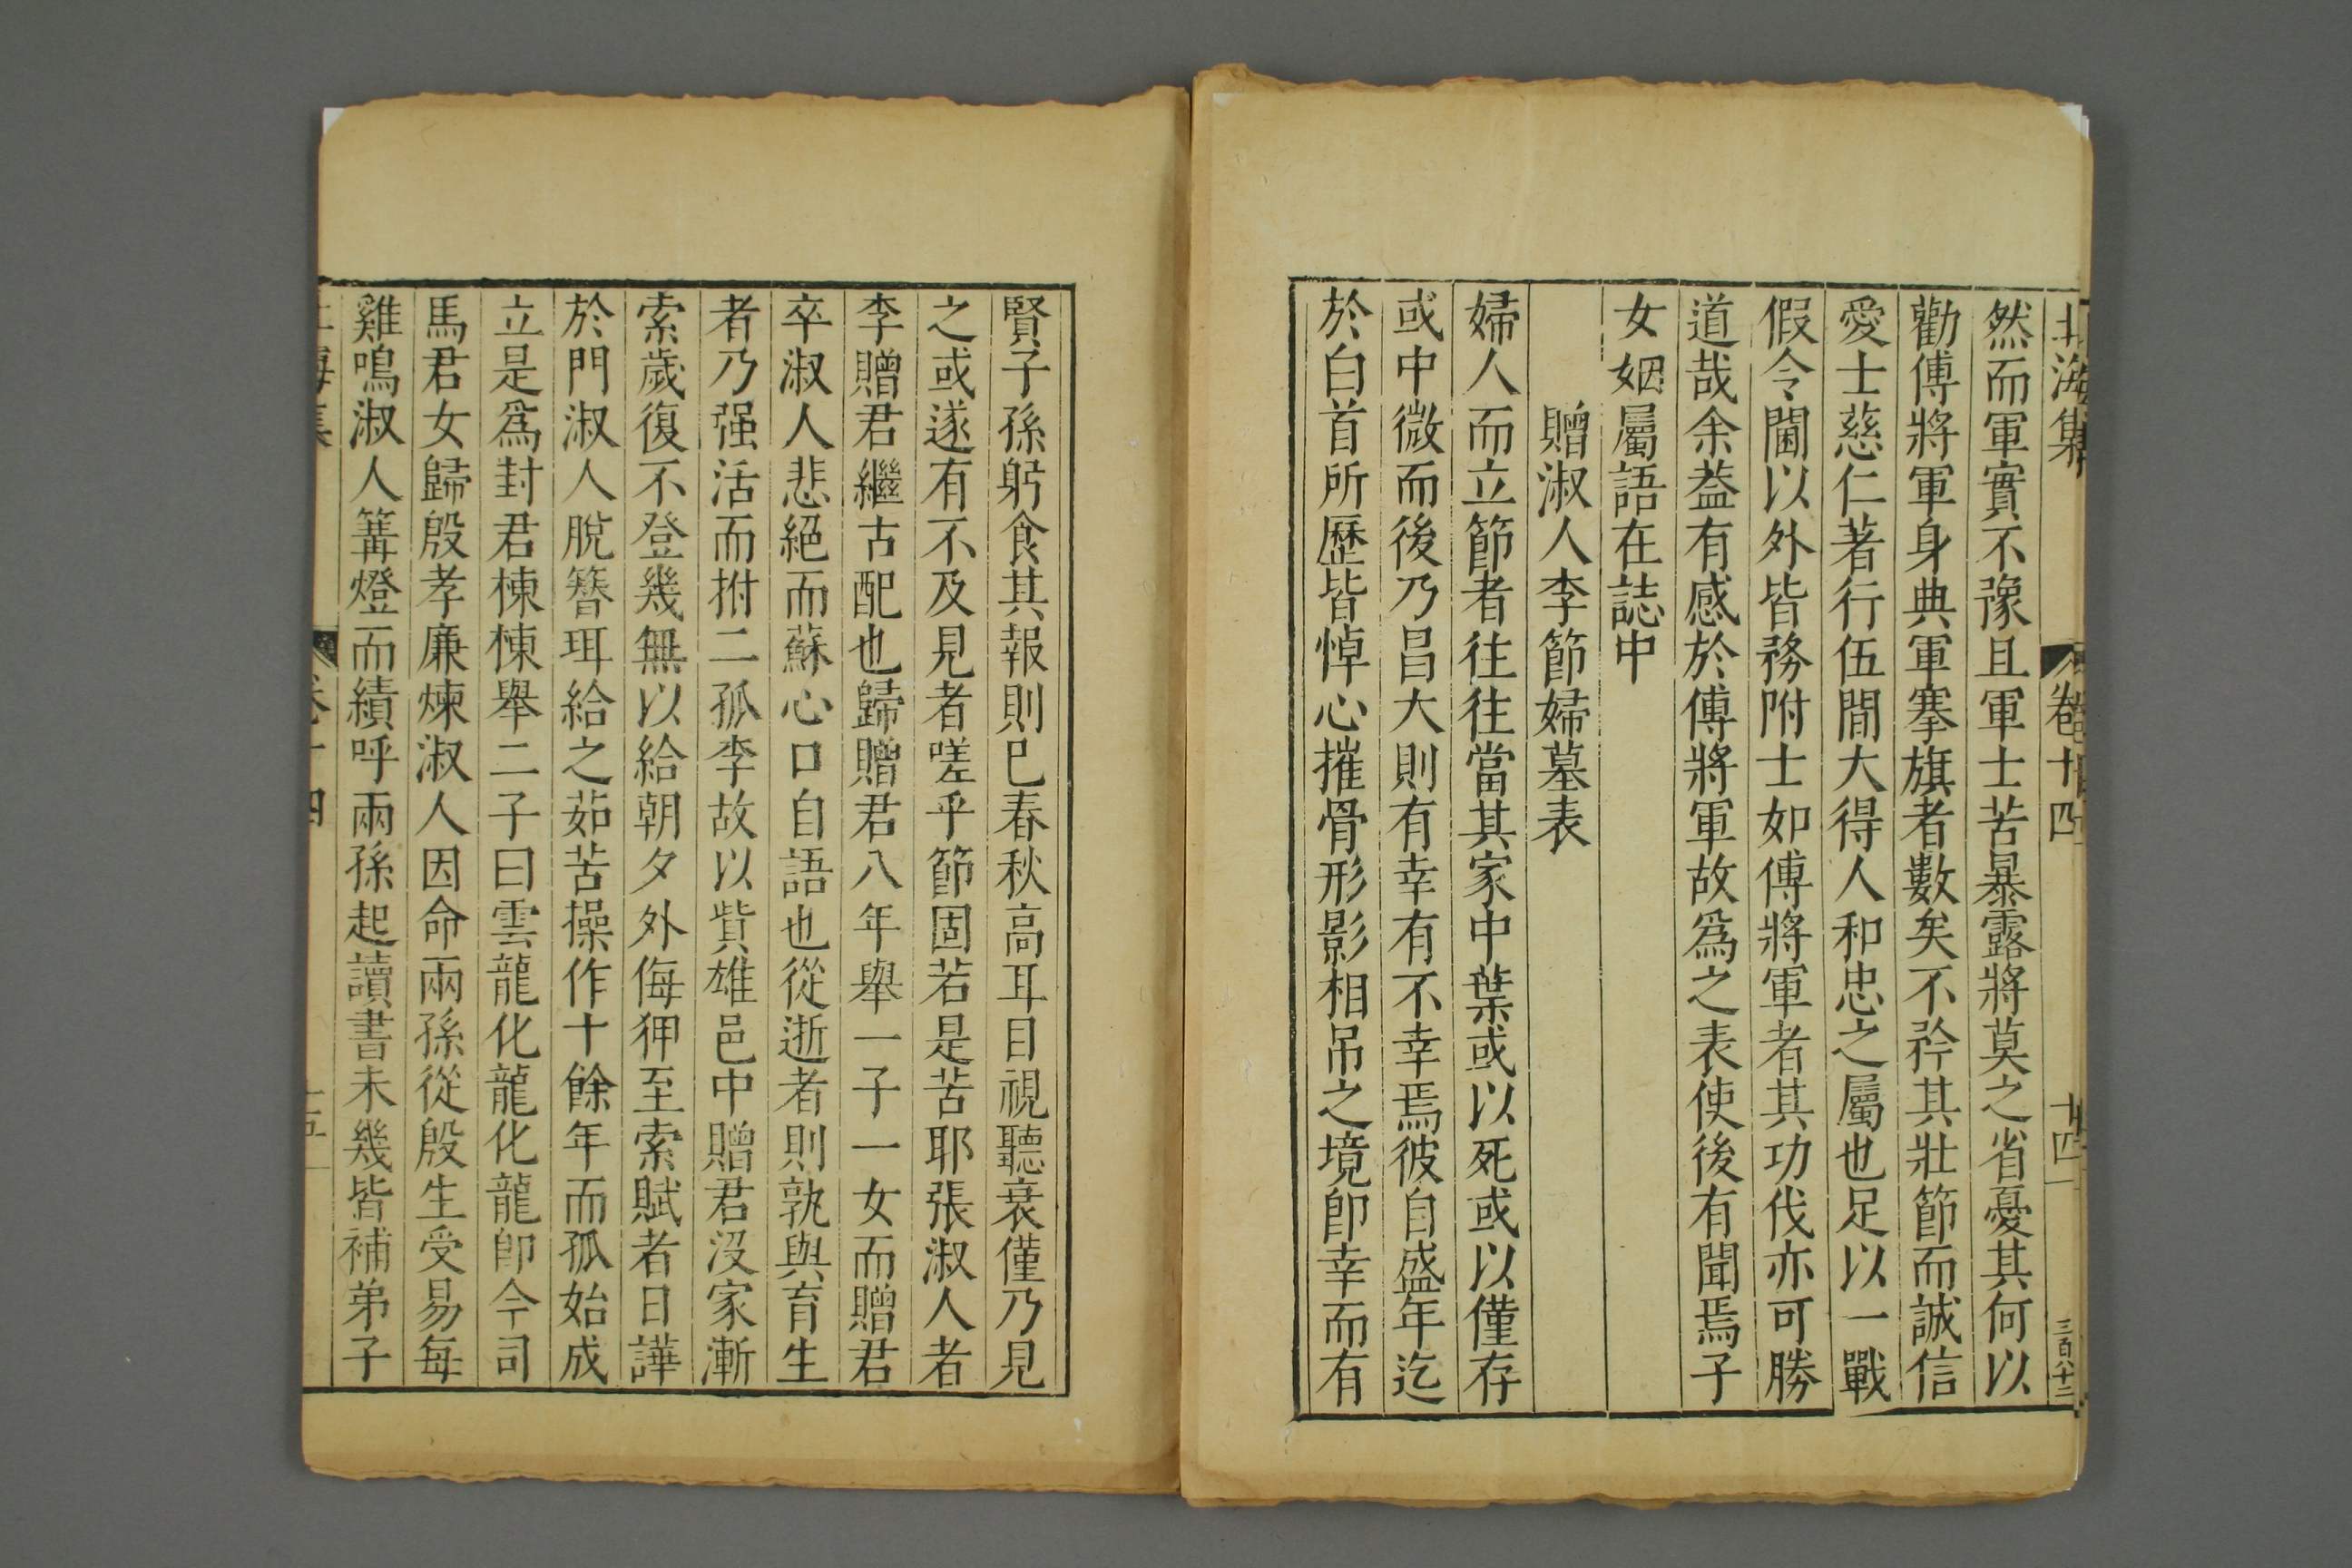 北海集 卷十四 十四 三百八十二
然而軍實不豫且軍士苦暴露將莫之省憂其何以
勸傅將軍身典軍搴旗者數矣不矜其壯節而誠信
愛士慈仁著行伍間大得人和忠之屬也足以一戰
假令閫以外皆務附士如傅將軍者其功伐亦可勝
道哉余葢有感於傅將軍故爲之表使後有聞焉子
女姻屬語在誌中
贈淑人李節婦墓表
婦人而立節者往往當其家中葉或以死或以僅存
或中微而後乃昌大則有幸有不幸焉彼自盛年迄
於白首所歷皆悼心摧骨形影相吊之境卽幸而有
賢子孫躬食其報則巳春秋高耳目視聽衰僅乃見
之或遂有不及見者嗟乎節固若是苦耶張淑人者
李贈君繼古配也歸贈君八年舉一子一女而贈君
卒淑人悲絕而蘇心口自語也從逝者則孰與育生
者乃强活而拊二孤李故以貲雄邑中贈君沒家漸
索歲復不登幾無以給朝夕外侮狎至索賦者日譁
於門淑人脫簪珥給之茹苦操作十餘年而孤始成
立是爲封君棟棟舉二子曰雲龍化龍化龍卽今司
馬君女歸殷孝廉煉淑人因命兩孫從殷生受易每
雞鳴淑人篝燈而績呼兩孫起讀書未幾皆補弟子
海集 卷十四 十五